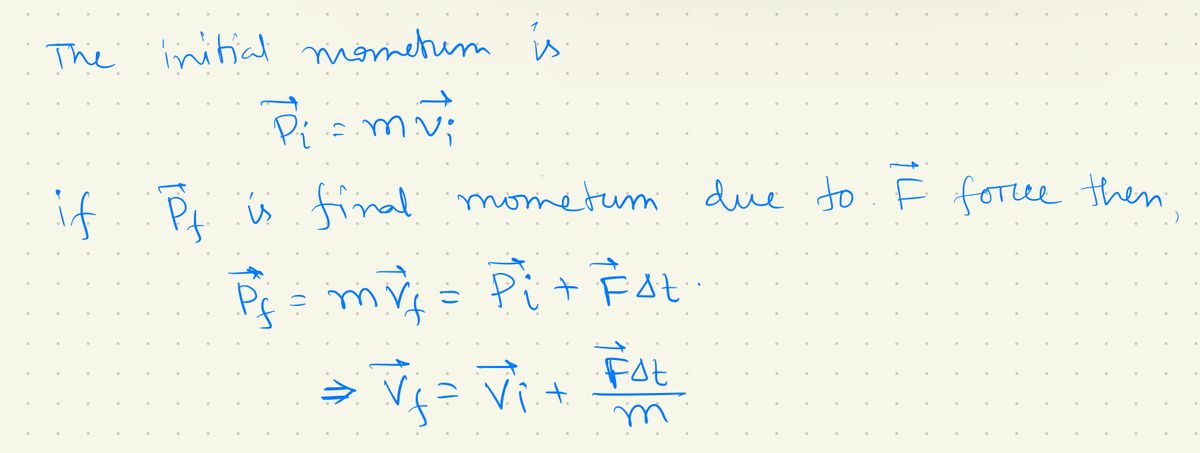 The initial mometum is
P⃗i = m v⃗i
if P⃗f is final mometum due to F⃗ force then,
P⃗f = m v⃗f = P⃗i + F⃗ Δt.
⇒ v⃗f = v⃗i + F⃗Δt / m